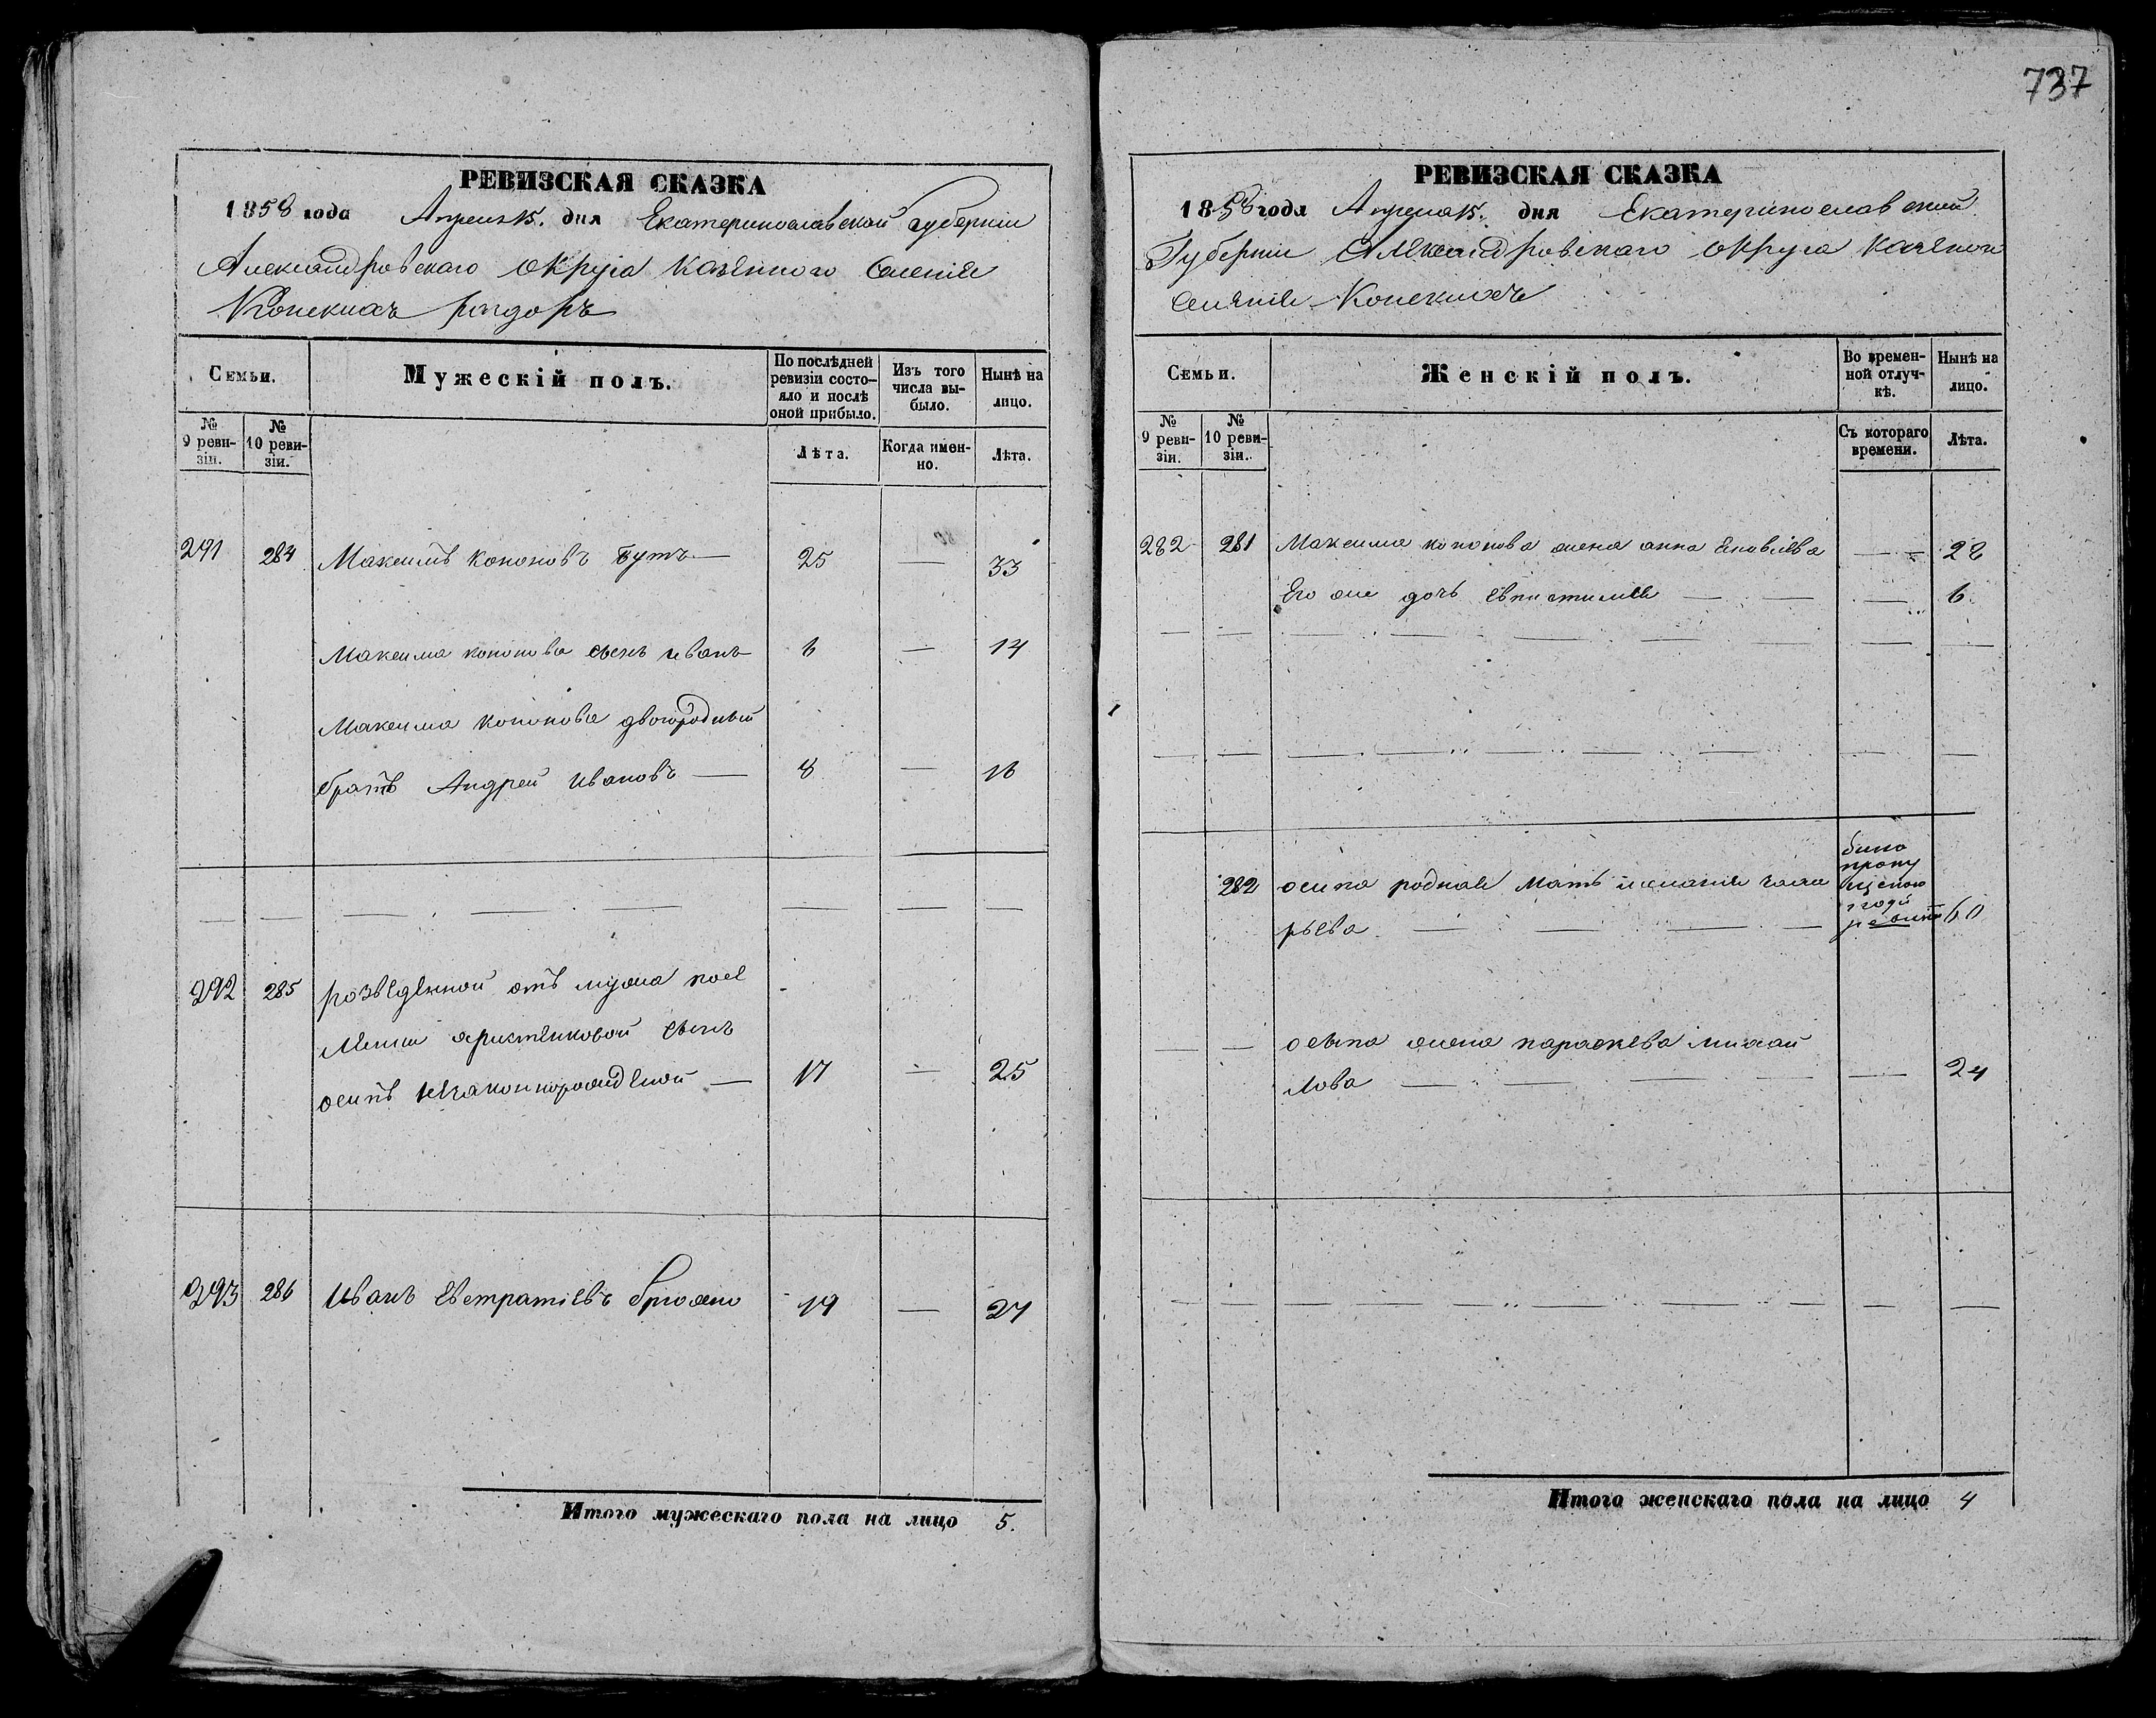 737
РЕВИЗСКАЯ СКАЗКА
1858 года Апреля 15. дня Екатеринославской губернии
Александровскаго округа казенного Селения
Конскихъ раздоръ
Семьи.
Мужескій полъ.
По послѣдней ревизіи состояло и послѣ оной прибыло.
Изъ того числа выбыло.
Нынѣ на лицо.
№ 9 ревизіи.
№ 10 ревизіи.
Лѣта.
Когда именно.
Лѣта.
291 284 Максимъ кононовъ Бутъ — 25 — 33
Максима кононова сынъ иванъ 6 — 14
Максима кононова двоюродный
братъ Андрей Ивановъ — 8 — 16
292 285 розведенной отъ мужа
сынъ
осипъ незаконнорожденой — 17 — 25
293 286 Иванъ Евстратіевъ 19 — 27
Итого мужескаго пола на лицо 5.
РЕВИЗСКАЯ СКАЗКА
1858 года Апреля 15. дня Екатеринославской
Губернии Александровскаго округа казеного
Селения Конскихъ
Семьи.
Женскій полъ.
Во временной отлучкѣ.
Нынѣ на лицо.
№ 9 ревизіи.
№ 10 ревизіи.
Съ котораго времени.
Лѣта.
282 281 Максима кононова жена анна Яковлева — 28
Его же дочь — 6
282 осипа родная мать
рьева 60
осипа жена параскева михай
лова — 24
Итого женскаго пола на лицо 4